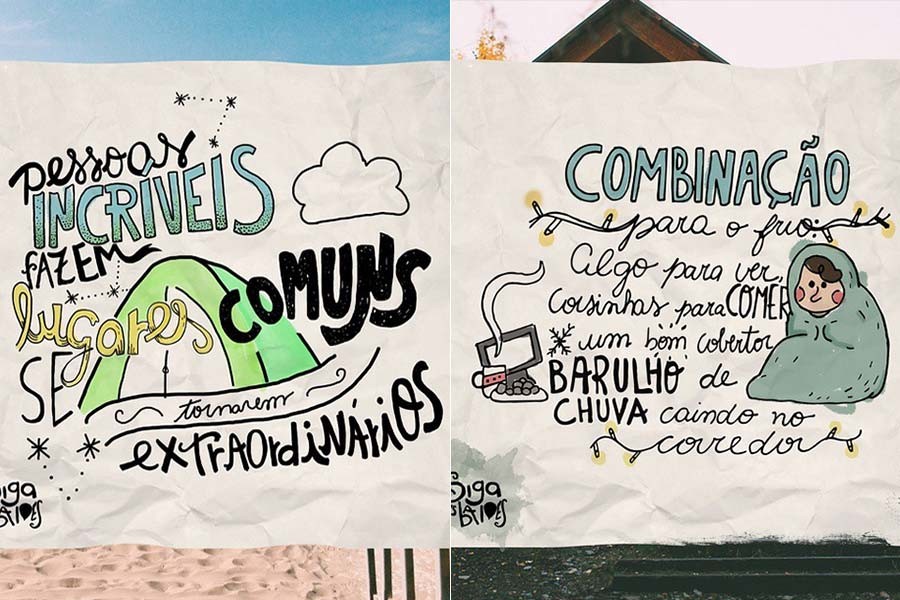 pessoas
INCRÍVEIS
FAZEM
lugares COMUNS
SE
tornarem
extraordiNÁRiOS
COMBINAÇÃO
para o frio:
Algo para ver,
coisinhas para COMER
um bom cobertor
BARULHO de
CHUVA caindo no
corredor
Siga